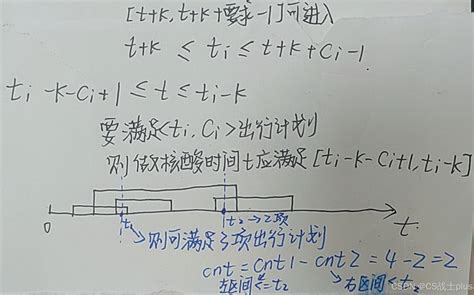 [t+k, t+k+要求-1]可进入
t+k ≤ ti ≤ t+k+Ci-1
ti-k-Ci+1 ≤ t ≤ ti-k
要满足<ti, Ci>出行计划
则做核酸时间t应满足[ti-k-Ci+1, ti-k]
0 t1 t2→2项 t
则可满足3项出行计划
cnt = cnt1 - cnt2 = 4-2=2
左区间<=t2 右区间<t2
CSDN @CS战士plus